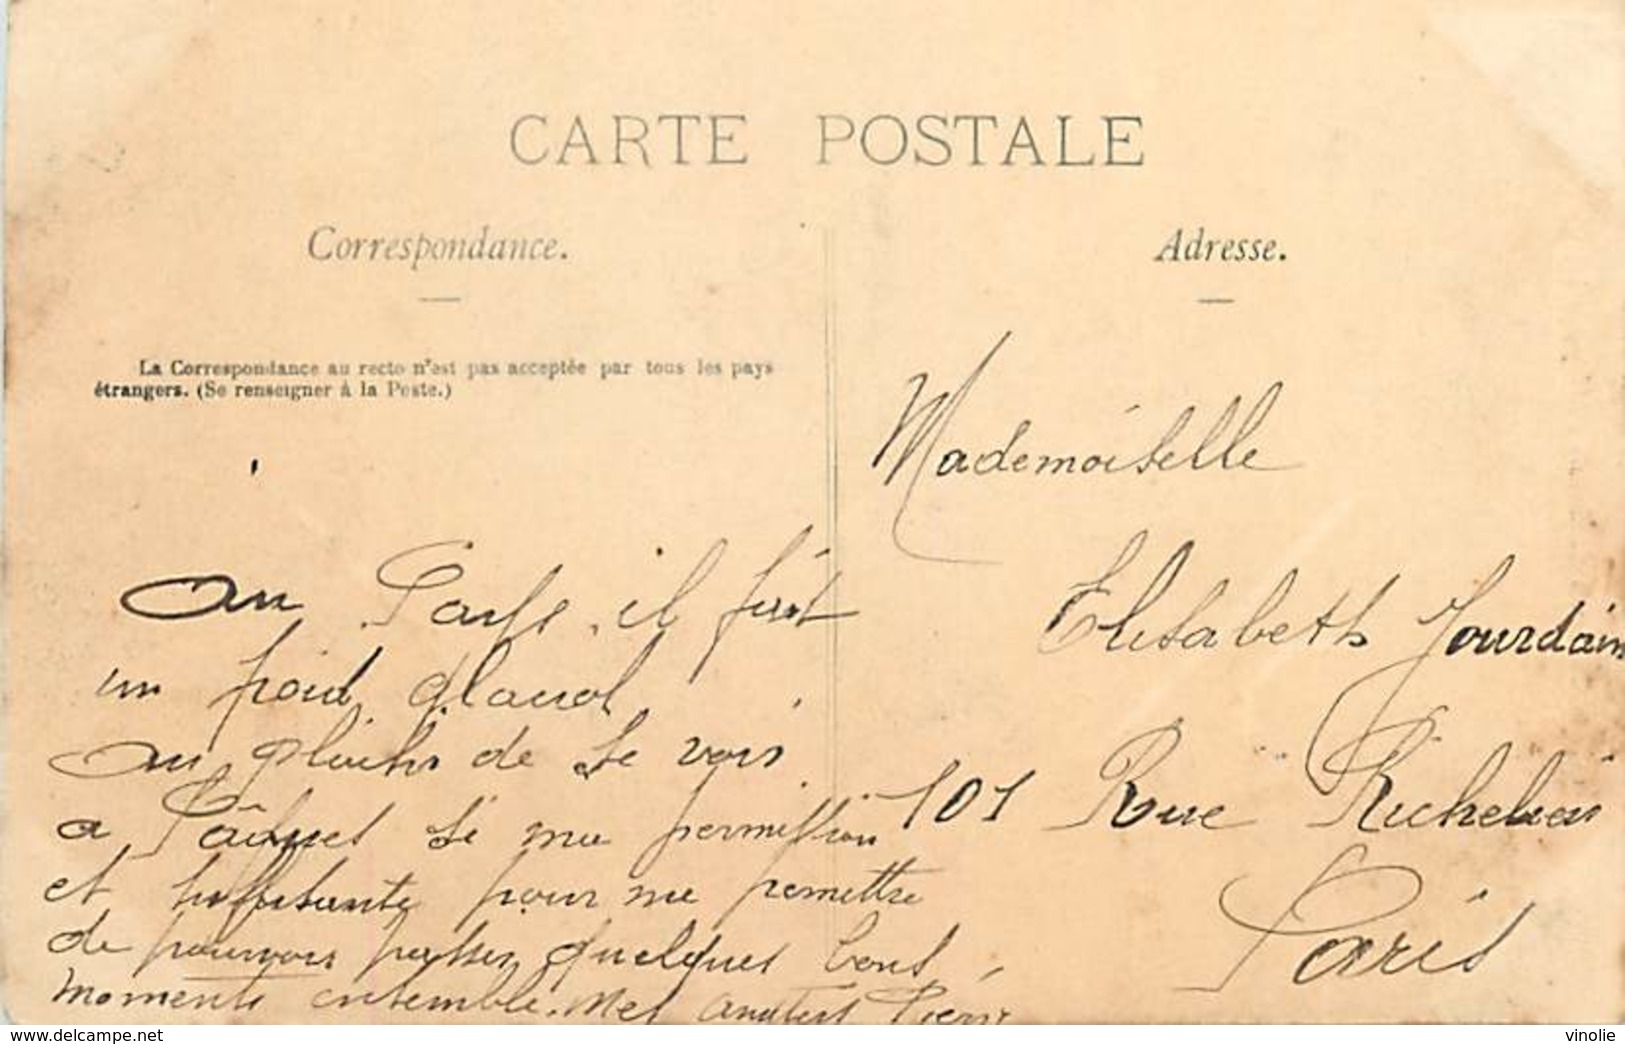 CARTE POSTALE
Correspondance.
Adresse.
La Correspondance au recto n'est pas acceptée par tous les pays
étrangers. (Se renseigner à la Poste.)
Mademoiselle
Elisabeth Jourdain
101 Rue Richelieu
Paris
il fait
un froid glacial
Au plaisir de te voir
a Pâques si ma permission
et suffisante pour me permettre
de pouvoir passer quelques bons
moments ensemble. Mes Pierre
www.delcampe.net
vinolie